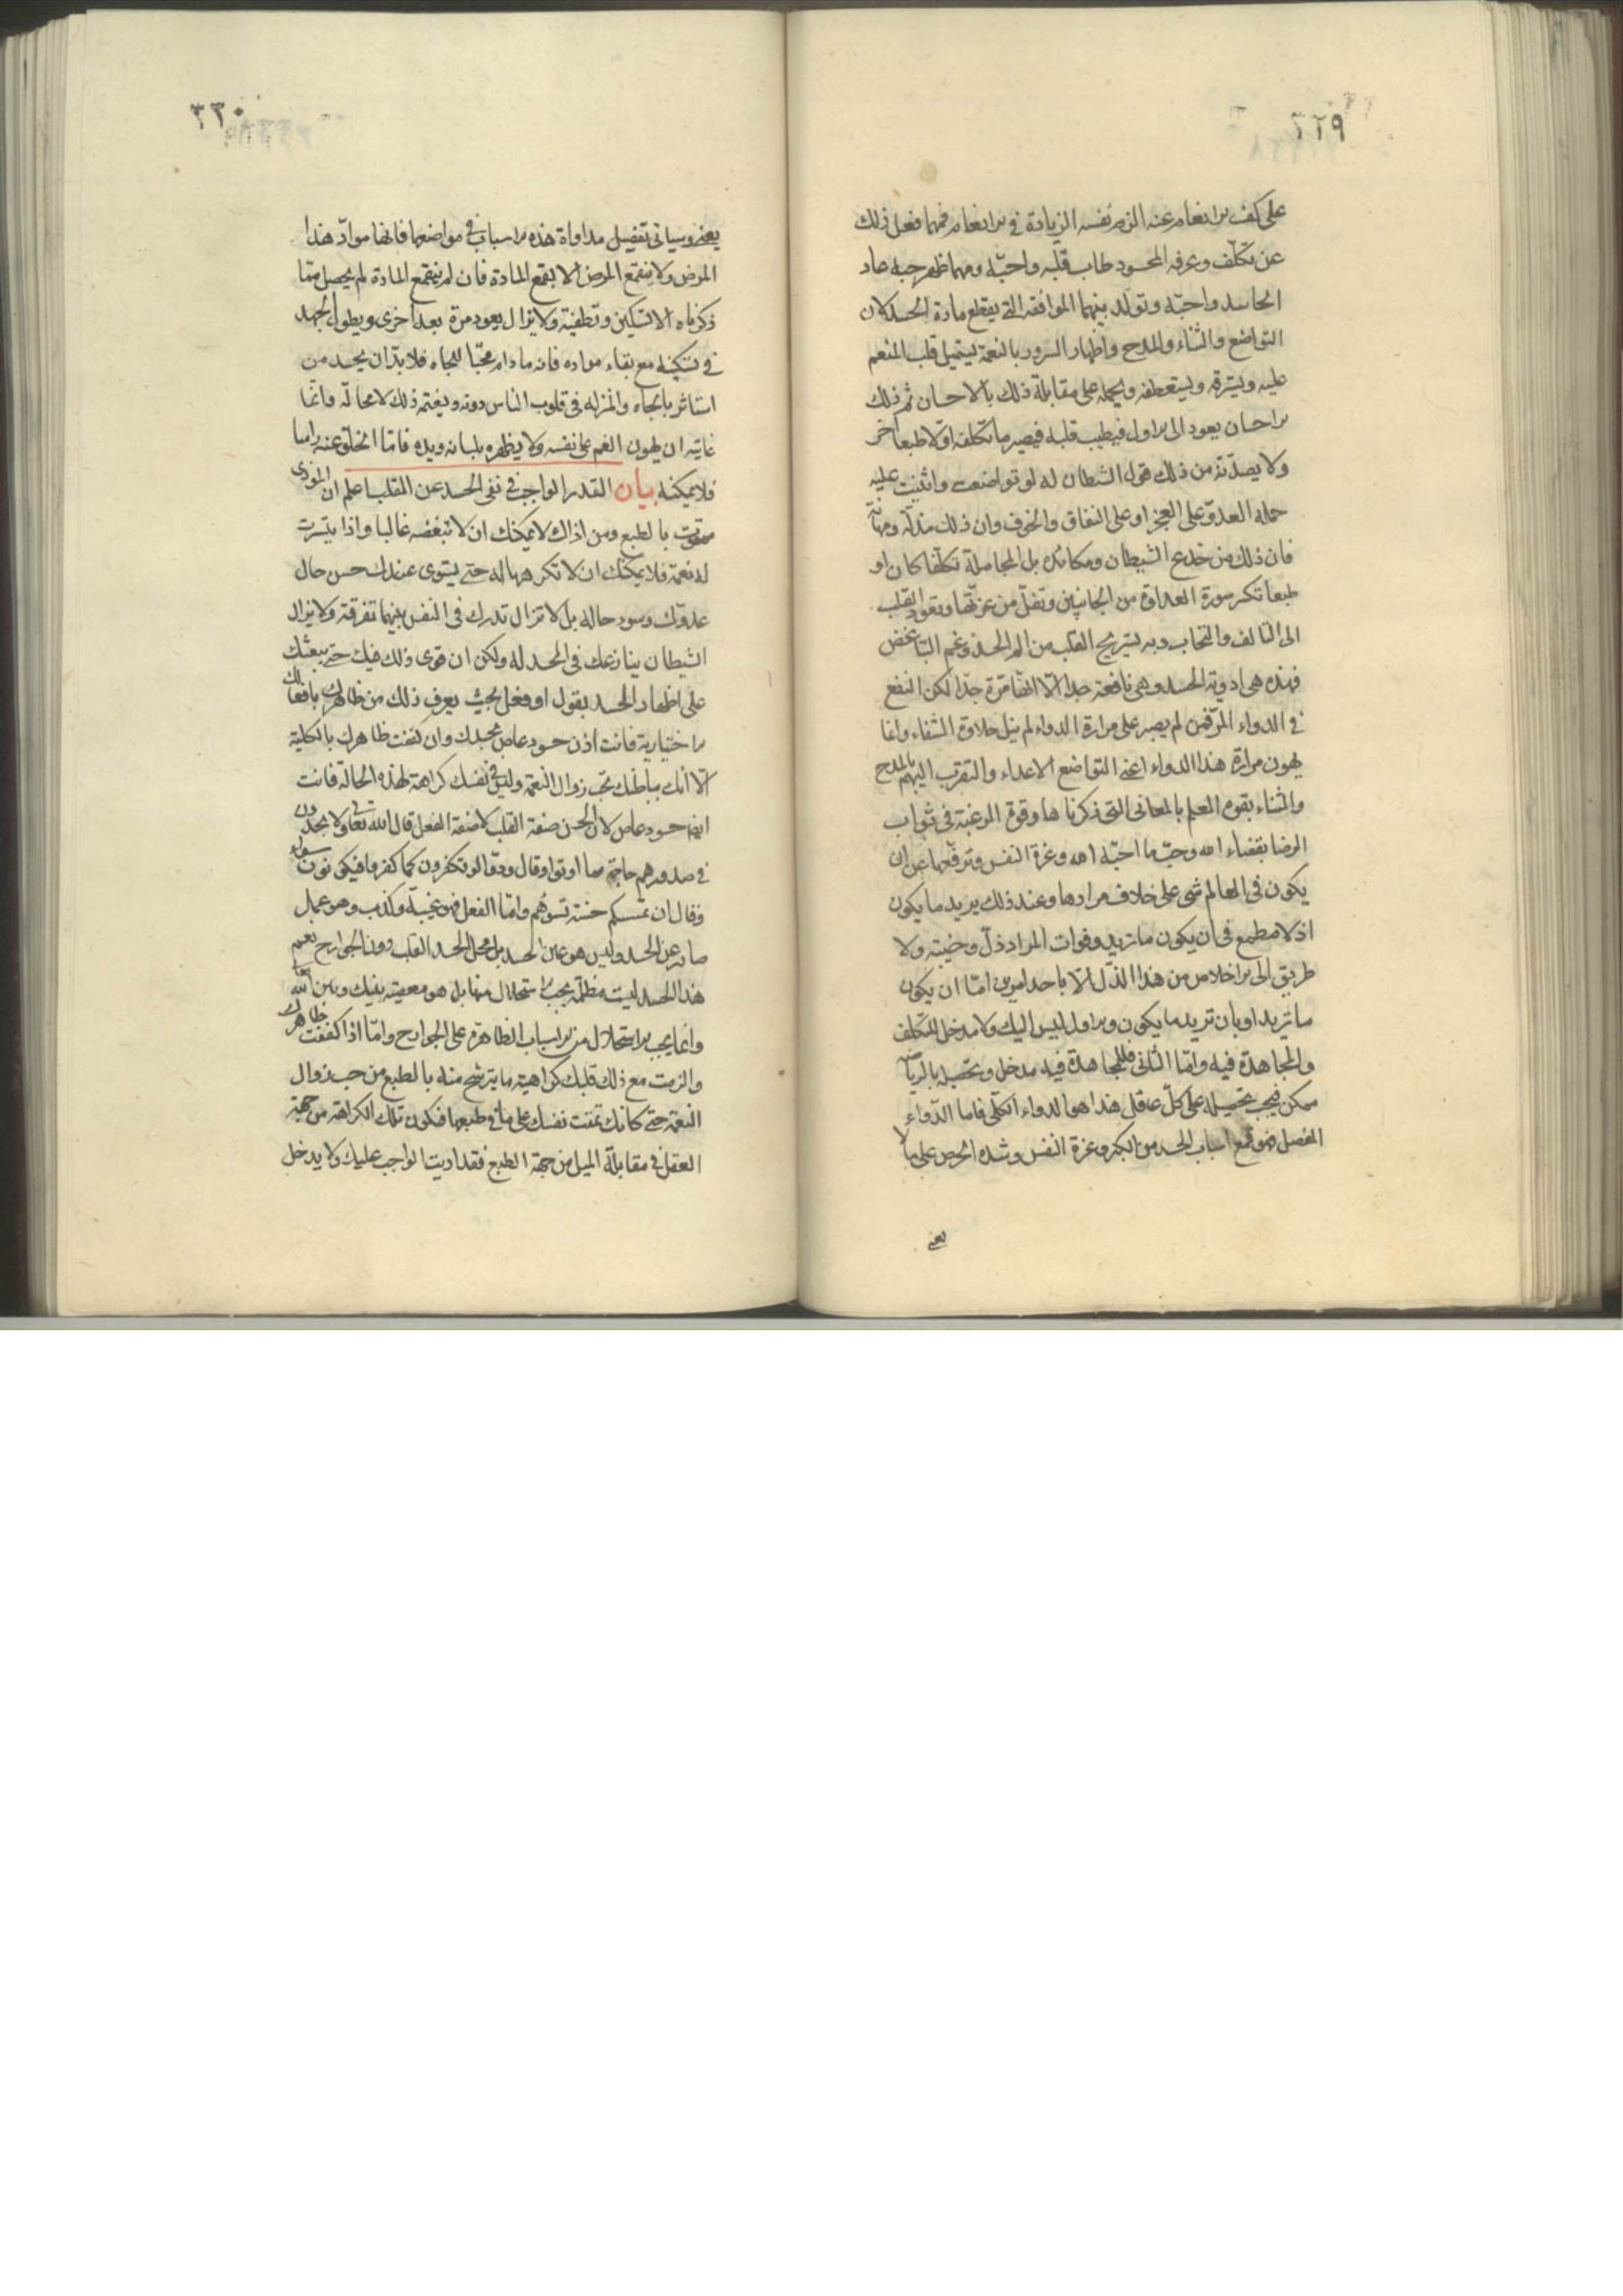 ٣٢٩
على كف الانعام عنه الزم نفسه الزيادة فى الانعام فمهما فعل ذلك
عن تكلّف وعرفه المحسود طاب قلبه واحبّه ومهما ظهر حبه عاد
الحاسد واحبّه وتولد بينهما الموافقه التى يقطع مادة الحسد لان
التواضع والثناء والمدح واظهار السرور بالنعمة يستميل قلب المنعم
عليه ويسترقه ويستعطفه ويحمله على مقابلة ذلك بالاحسان ثم ذلك
الاحسان يعود الى الاول فيطيب قلبه فيصير ما تكلفه اوّلا طبعا اخر
ولا يصدّنه من ذلك قول الشطان له لو تواضعت واثنيت عليه
حمله العدوّ على العجز او على النفاق والخوف وان ذلك مذلّة ومهانة
فان ذلك من خدع الشيطان ومكائده بل المجاملة تكلّفا كان او
طبعا تكسر سورة العداوة من الجانبين وتفلّ من عزتها وتعود القلب
الى التالف والتحاب وبه يستريح القلب من الم الحسد وغم التباغض
فهذه هى ادوية الحسد وهى نافعة جدا الّا انّها مّرة جدّا لكن النفع
فى الدواء المرّ فمن لم يصبر على مرارة الدواء لم ينل حلاوة الشفاء وانما
يهون مرارة هذا الدواء اعنى التواضع الاعداء والتقرب اليهم بالمدح
والثناء بقوه العلم بالمعانى التى ذكرنا ها وقوة الرغبة فى ثواب
الرضا بقضاء الله وحبّ ما احبّه الله وعزة النفس وترفّعها عن ان
يكون فى العالم شى على خلاف مرادها وعند ذلك يريد ما يكون
اذ لا مطمع فى ان يكون ما تريد وفوات المراد ذلّ وخيبة ولا
طريق الى الاخلاص من هذا الذّل الّا باحد امرين امّا ان يكون
ما تريد او بان تريد ما يكون والاول ليس اليك ولا مدخل للتكلف
والمجاهدة فيه وامّا الثانى فللمجاهدة فيه مدخل وتحصيله بالرياضة
ممكن فيجب تحصيله على كلّ عاقل هذا هو الدواء الكلّى فاما الدّواء
المفصل فهو قمع اسباب الحسد من الكبر وعزة النفس وشده الحرص على ما لا
يعنى
٣٣٠
يعنى وسياتى تفصيل مداواة هذه الاسباب فى مواضعها فانها موادّ هذا
المرض ولا ينقمع المرض الا بقمع المادة فان لم ينقمع المادة لم يحصل ممّا
ذكرناه الا تسكين وتطفية ولا يزال يعود مرة بعد اخرى ويطول الجهد
فى تسكينه مع بقاء مواده فانه ما دام محبّا للجاه فلا بدّ ان يحسد من
استاثر بالجاه والمنزله فى قلوب الناس دونه ويغتمه ذلك لا محالّة وانّما
غايته ان يهون الغم على نفسه ولا يظهره بلسانه ويده فامّا الخلوّ عنه راسا
فلا يمكنه بيان القدر الواجب فى نفى الحسد عن القلب اعلم ان الموذى
ممقوت بالطبع ومن اذاك لا يمكنك ان لا تبغضه غالبا واذا يتسرت
له نعمة فلا يمكنك ان لا تكرهها له حتى يستوى عندك حسن حال
عدوّك وسوء حاله بل لا تزال تدرك فى النفس بينهما تفرقة ولا يزال
الشيطان ينازعك فى الحسد له ولكن ان قوى ذلك فيك حتى يبعثك
على اظهار الحسد بقول او فعل بحيث يعرف ذلك من ظاهرك بافعالك
الاختيارية فانت اذن حسود عاص بحسدك وان كففت ظاهرك بالكلية
الّا انّك بباطنك تحب زوال النعمة وليس فى نفسك كراهة لهذه الحالة فانت
ايضا حسود عاص لان الحسد صفة القلب لا صفة الفعل قال الله تعالى ولا يجدون
فى صدورهم حاجة مما اوتوا وقال ودّوا لو تكفرون كما كفروا فيكونون سواء
وقال ان تمسسكم حسنة تسؤهم وامّا الفعل فهو غيبة وكذب وهو عمل
صادر عن الحسد وليس هو عين الحسد بل محل الحسد القلب دون الجوارح نعم
هذا الحسد ليست مظلمة يجب الاستحلال منها بل هو معصية بينك وبين الله تعالى
وانما يجب الاستحلال من الاسباب الظاهرة على الجوارح وامّا اذا كففت ظاهرك
والزمت مع ذلك قلبك كراهية ما يترشح منه بالطبع من حب زوال
النعمة حتى كانك تمقت نفسك على ما فى طبعها فتكون تلك الكراهة من جهة
العقل فى مقابلة الميل من جهة الطبع فقد اديت الواجب عليك ولا يدخل